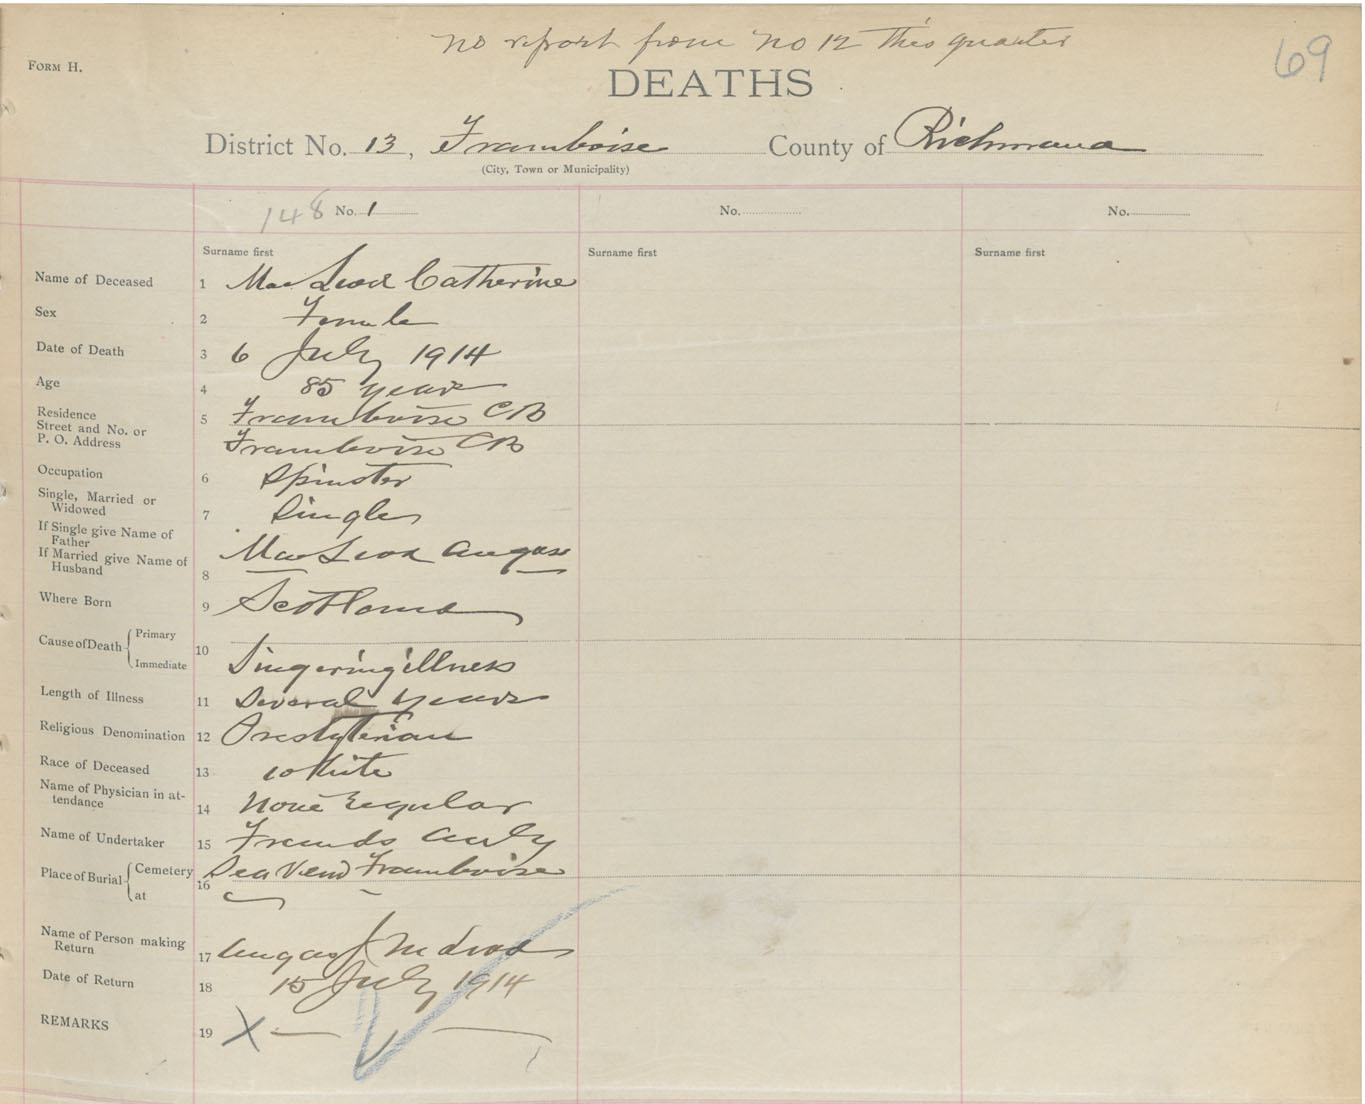 no report from no 12 this quarter
69
FORM H.
DEATHS
District No. 13, Framboise County of Richmond
(City, Town or Municipality)
148 No. 1 No. No.
Surname first Surname first Surname first
Name of Deceased 1 MacLeod Catherine
Sex 2 Female
Date of Death 3 6 July 1914
Age 4 85 years
Residence
Street and No. or 5 Framboise CB
P. O. Address Framboise CB
Occupation 6 Spinster
Single, Married or
Widowed 7 Single
If Single give Name of
Father
If Married give Name of MacLeod Angus
Husband 8
Where Born 9 Scotland
Cause of Death { Primary 10
Immediate Lingering illness
Length of Illness 11 Several years
Religious Denomination 12 Presbyterian
Race of Deceased 13 White
Name of Physician in at-
tendance 14 None regular
Name of Undertaker 15 Friends only
Place of Burial { Cemetery 16 Framboise
at
Name of Person making
Return 17 Angus J McLeod
Date of Return 18 15 July 1914
REMARKS 19 X